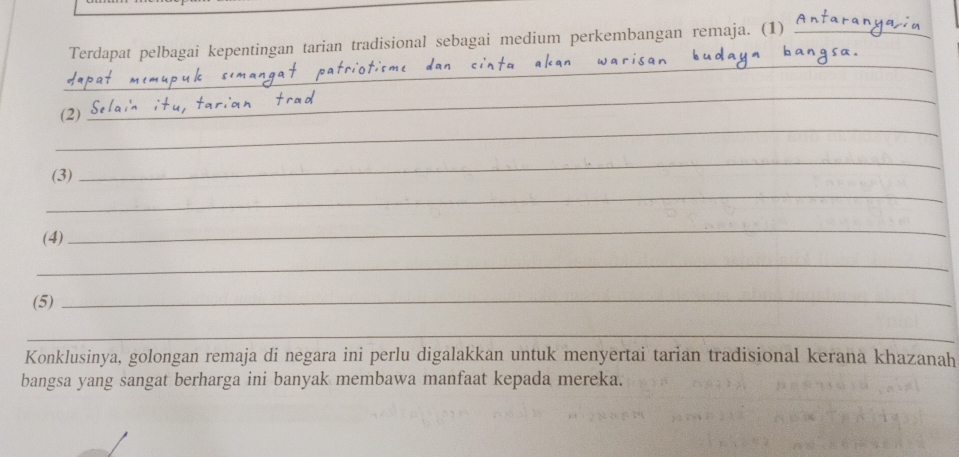 Terdapat pelbagai kepentingan tarian tradisional sebagai medium perkembangan remaja. (1) Antaranya, ia
dapat memupuk semangat patriotisme dan cinta akan warisan budaya bangsa.
(2) Selain itu, tarian trad
(3)
(4)
(5)
Konklusinya, golongan remaja di negara ini perlu digalakkan untuk menyertai tarian tradisional kerana khazanah
bangsa yang sangat berharga ini banyak membawa manfaat kepada mereka.